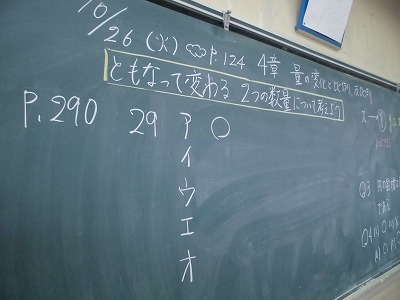 10/26 (火) P.124 4章 量の変化と比例、反比例
ともなって変わる 2つの数量について考えよう
P.290 29 ア ○
イ
ウ
エ
オ
Q3
Q4